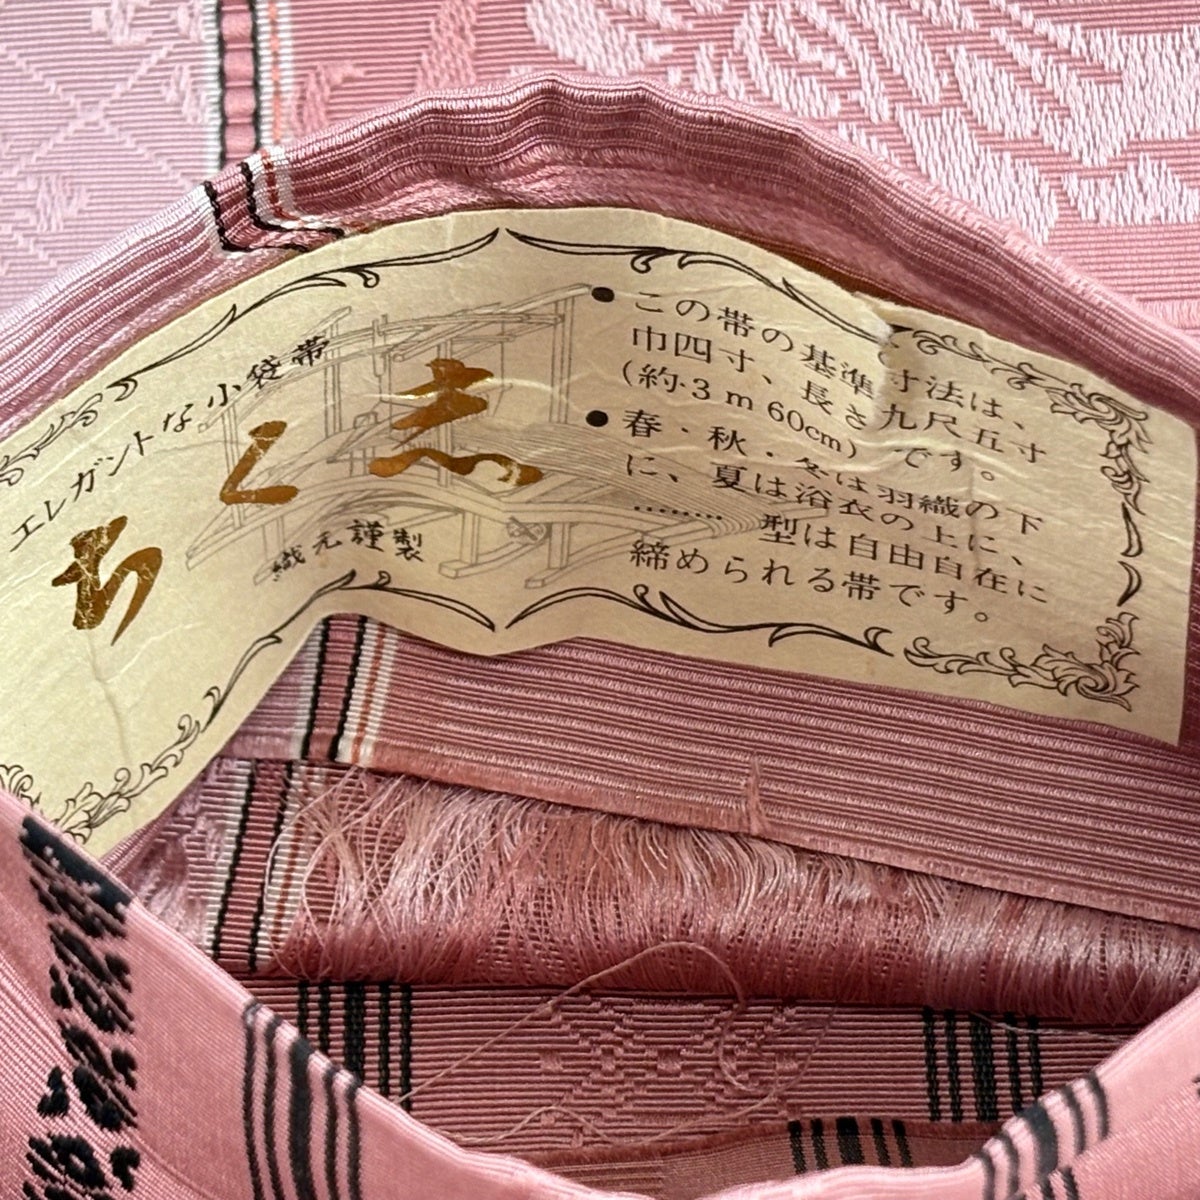 エレガントな小袋帯
ちく志
織元謹製
●この帯の基準寸法は、
巾四寸、長さ九尺五寸
(約3m60cm)です。
●春・秋・冬は羽織の下
に、夏は浴衣の上に、
………型は自由自在に
締められる帯です。